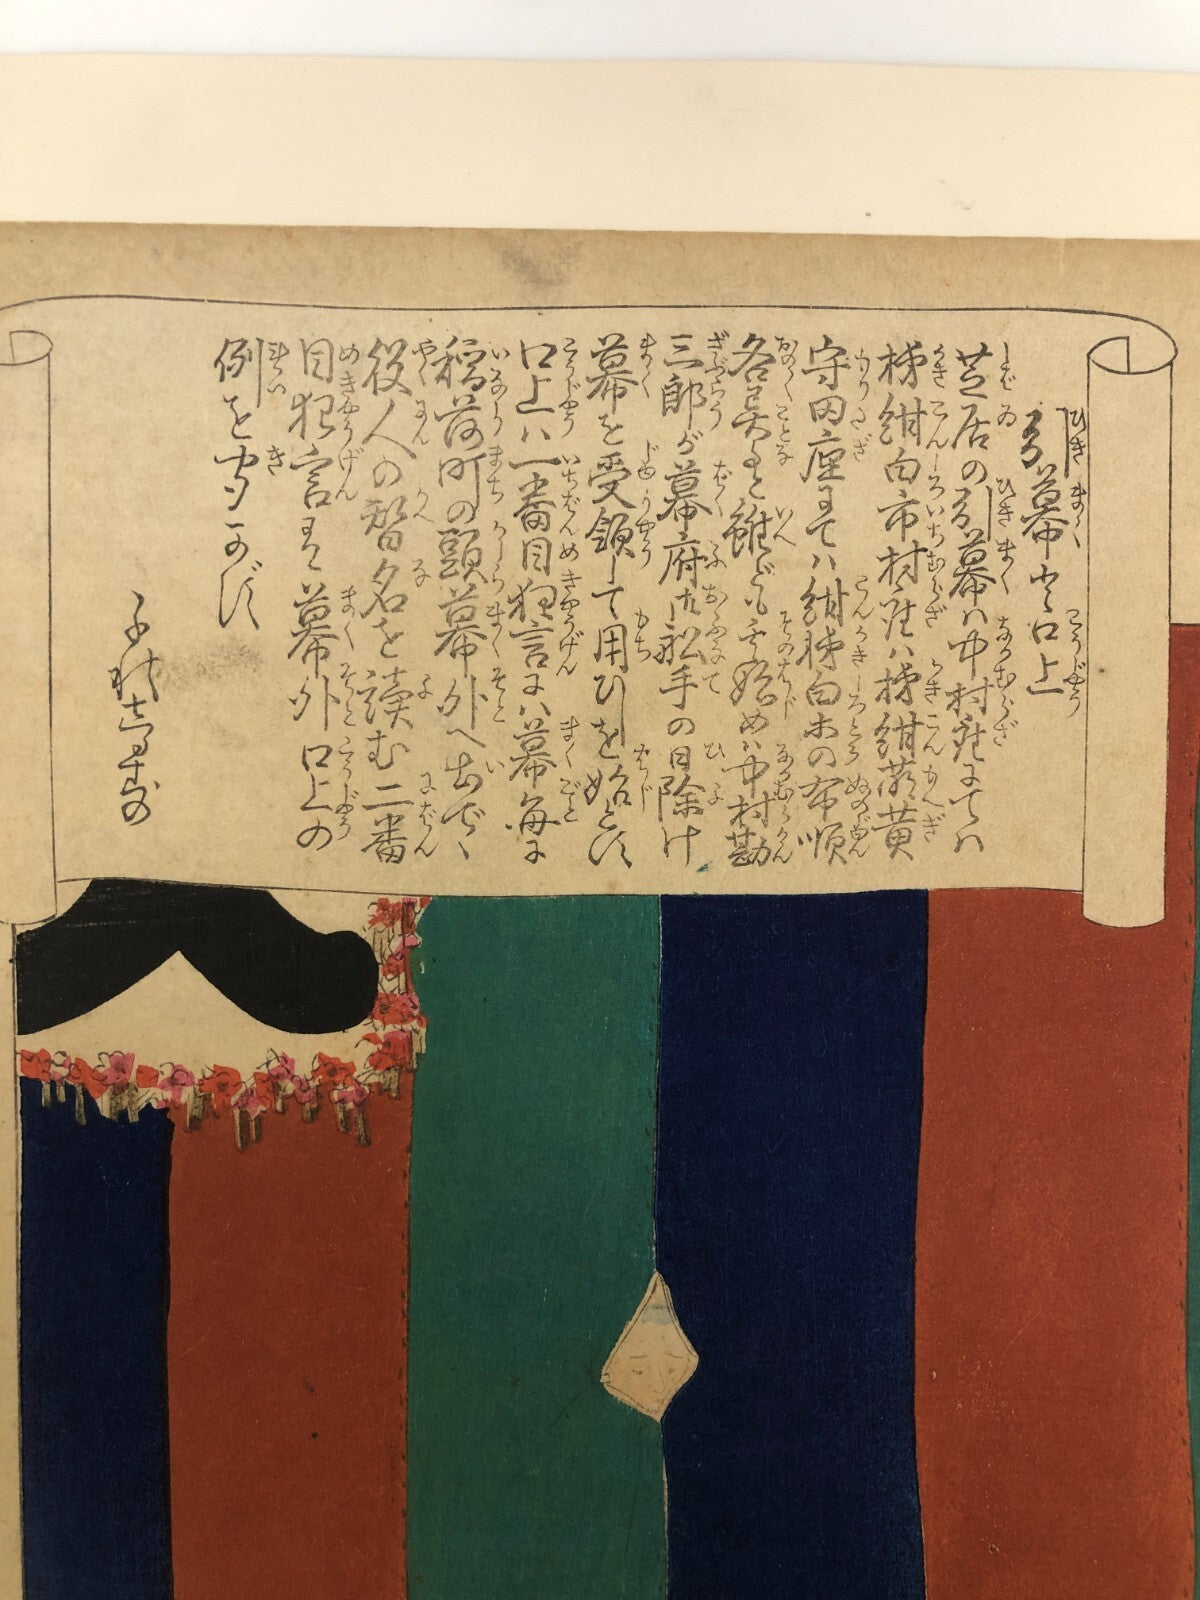 引幕と口上
芝居の引幕ハ中村座にてハ
柿紺白市村座ハ柿紺萠黄
守田座にてハ紺柿白木の布順
各異ると雖ども其始めハ中村勘
三郎が幕府御舩手の日除け
幕を受領して用ひを始とす
口上ハ一番目狂言にハ幕毎に
稲荷町の頭幕外へ出で、
役人の替名を読む二番
目狂言には幕外口上の
例を聞かず